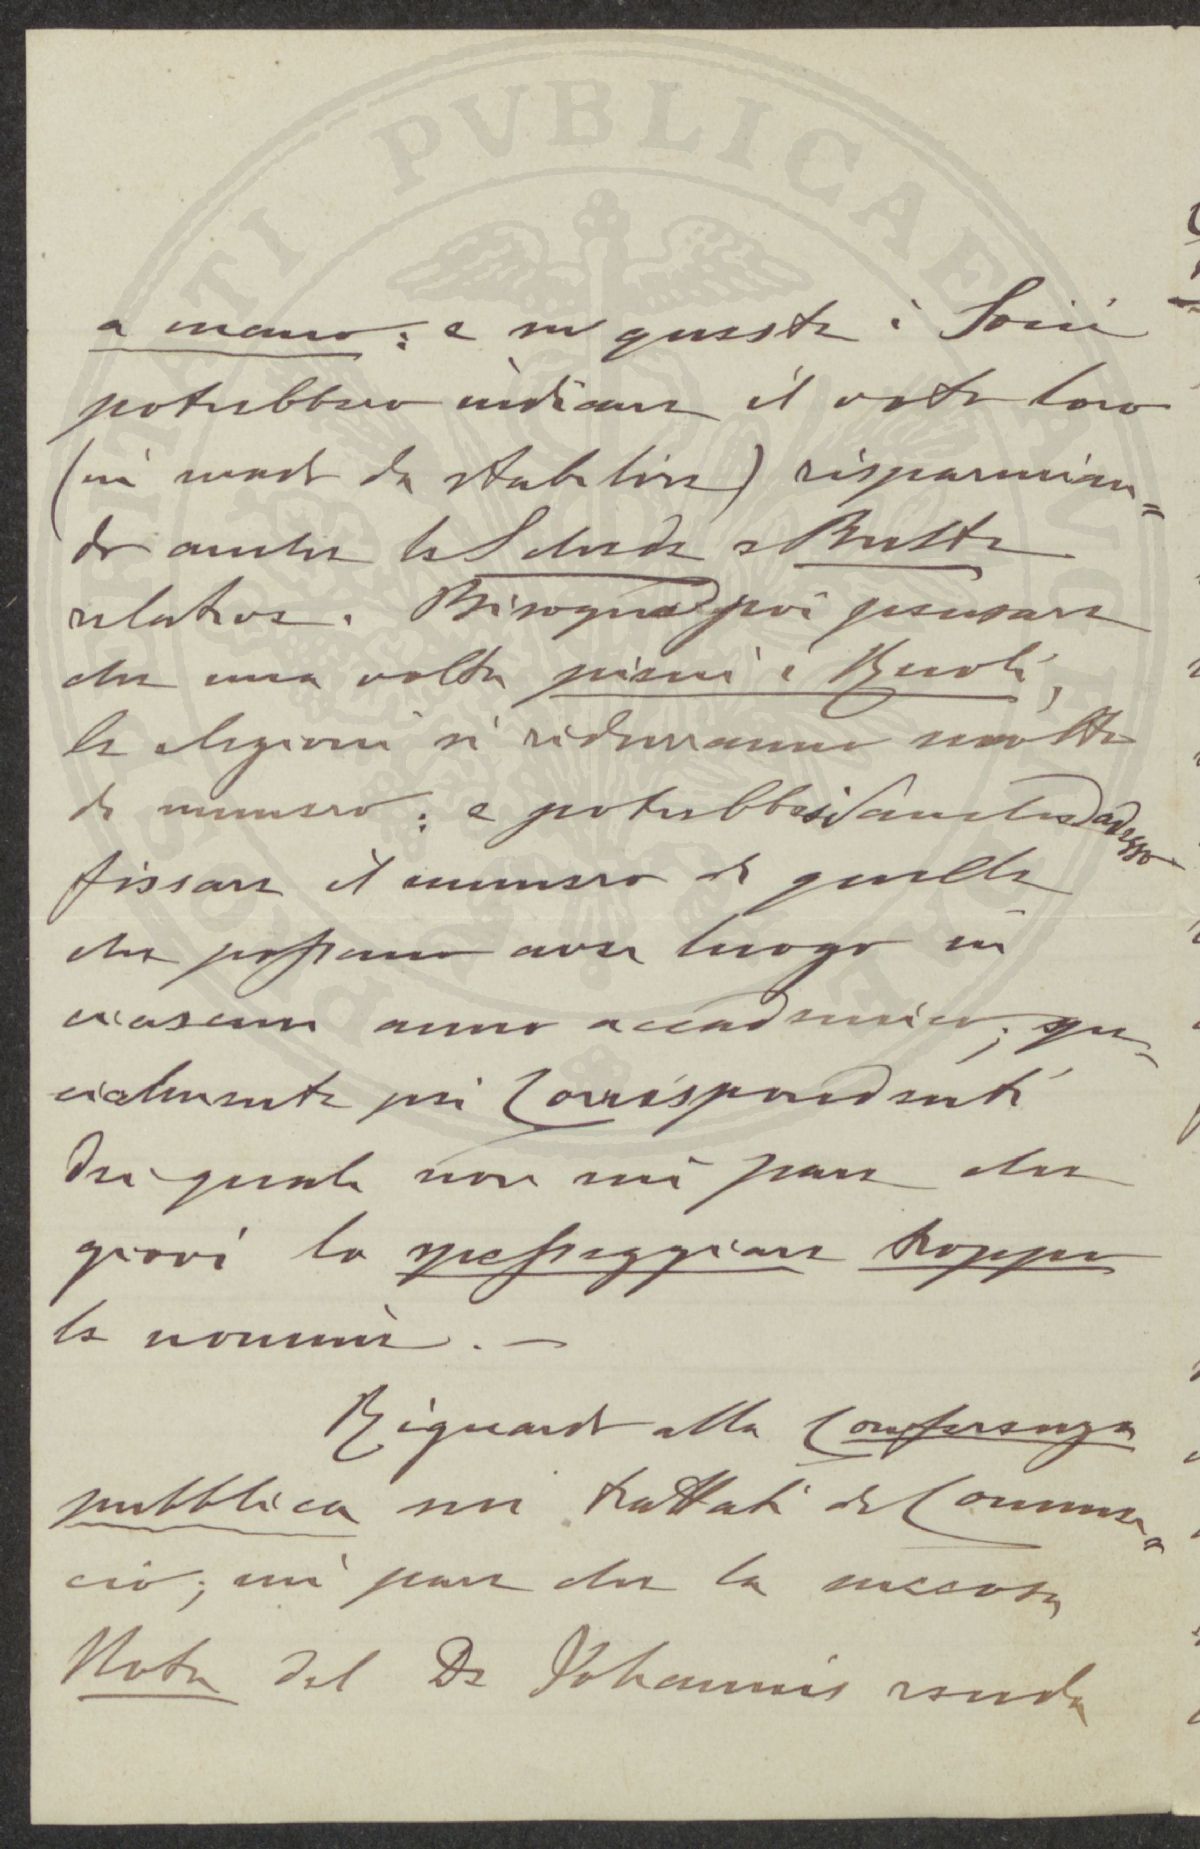 a mano: e su queste i Socii
potrebbero indicare il voto loro
(in modo da stabilire) risparmian=
do anche le Schede e Buste
relative. Bisogna poi pensare
che una volta pieni i Ruoli,
le elezioni si ridurranno molto
di numero: e potrebbesi anche adesso
fissare il numero di quelle
che possano aver luogo in
ciascun anno accademico; spe=
cialmente pei Corrispondenti
dei quali non mi pare che
giovi lo spesseggiare troppo
le nomine. —
Riguardo alla Conferenza
pubblica sui trattati di Commer=
cio; mi pare che la succosa
Nota del Dr Johannis renda
PROSPERITATI PVBLICAE